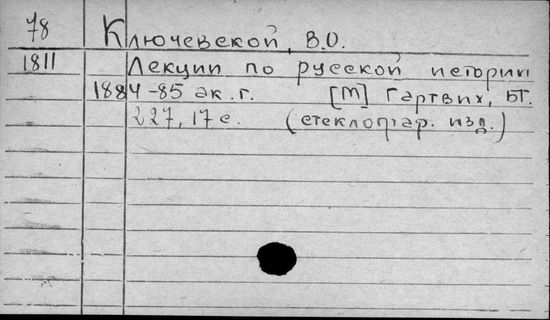 78
Ключевской, В.О.
1811
Лекции по русской истории
1884-85 ак. г. [М] Гартвих, БГ.
227, 17 с. (стеклогар. изд.)